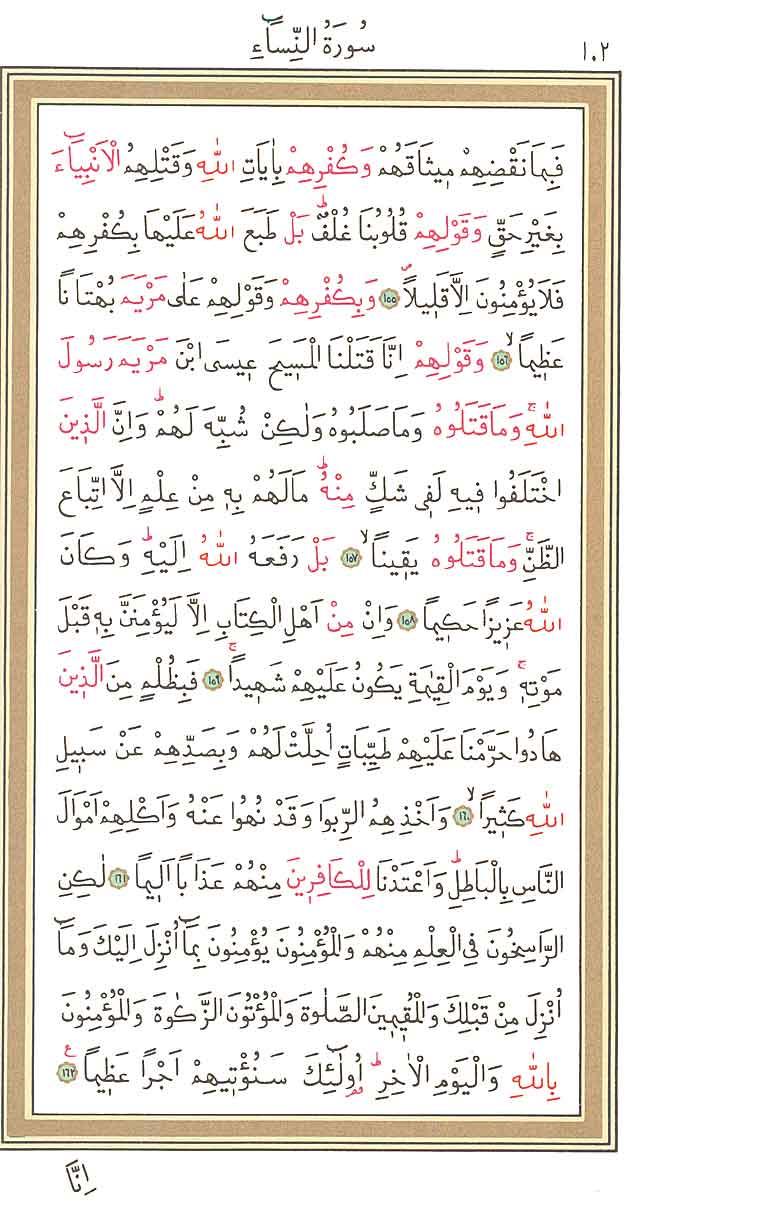 ١٠٢ سُورَةُ النِّسَٓاءِ
فَبِمَا نَقْضِهِمْ م۪يثَاقَهُمْ وَكُفْرِهِمْ بِاٰيَاتِ اللّٰهِ وَقَتْلِهِمُ الْاَنْبِيَٓاءَ
بِغَيْرِ حَقٍّ وَقَوْلِهِمْ قُلُوبُنَا غُلْفٌۜ بَلْ طَبَعَ اللّٰهُ عَلَيْهَا بِكُفْرِهِمْ
فَلَا يُؤْمِنُونَ اِلَّا قَل۪يلاًۖ ﴿١٥٥﴾ وَبِكُفْرِهِمْ وَقَوْلِهِمْ عَلٰى مَرْيَمَ بُهْتَاناً
عَظ۪يماًۙ ﴿١٥٦﴾ وَقَوْلِهِمْ اِنَّا قَتَلْنَا الْمَس۪يحَ ع۪يسَى ابْنَ مَرْيَمَ رَسُولَ
اللّٰهِۚ وَمَا قَتَلُوهُ وَمَا صَلَبُوهُ وَلٰكِنْ شُبِّهَ لَهُمْۜ وَاِنَّ الَّذ۪ينَ
اخْتَلَفُوا ف۪يهِ لَف۪ي شَكٍّ مِنْهُۜ مَا لَهُمْ بِه۪ مِنْ عِلْمٍ اِلَّا اتِّبَاعَ
الظَّنِّۚ وَمَا قَتَلُوهُ يَق۪يناًۙ ﴿١٥٧﴾ بَلْ رَفَعَهُ اللّٰهُ اِلَيْهِۜ وَكَانَ
اللّٰهُ عَز۪يزاً حَك۪يماً ﴿١٥٨﴾ وَاِنْ مِنْ اَهْلِ الْكِتَابِ اِلَّا لَيُؤْمِنَنَّ بِه۪ قَبْلَ
مَوْتِه۪ۚ وَيَوْمَ الْقِيٰمَةِ يَكُونُ عَلَيْهِمْ شَه۪يداًۚ ﴿١٥٩﴾ فَبِظُلْمٍ مِنَ الَّذ۪ينَ
هَادُوا حَرَّمْنَا عَلَيْهِمْ طَيِّبَاتٍ اُحِلَّتْ لَهُمْ وَبِصَدِّهِمْ عَنْ سَب۪يلِ
اللّٰهِ كَث۪يراًۙ ﴿١٦٠﴾ وَاَخْذِهِمُ الرِّبٰوا وَقَدْ نُهُوا عَنْهُ وَاَكْلِهِمْ اَمْوَالَ
النَّاسِ بِالْبَاطِلِۜ وَاَعْتَدْنَا لِلْكَافِر۪ينَ مِنْهُمْ عَذَاباً اَل۪يماً ﴿١٦١﴾ لٰكِنِ
الرَّاسِخُونَ فِي الْعِلْمِ مِنْهُمْ وَالْمُؤْمِنُونَ يُؤْمِنُونَ بِمَٓا اُنْزِلَ اِلَيْكَ وَمَٓا
اُنْزِلَ مِنْ قَبْلِكَ وَالْمُق۪يم۪ينَ الصَّلٰوةَ وَالْمُؤْتُونَ الزَّكٰوةَ وَالْمُؤْمِنُونَ
بِاللّٰهِ وَالْيَوْمِ الْاٰخِرِۜ اُو۬لٰٓئِكَ سَنُؤْت۪يهِمْ اَجْراً عَظ۪يماً۟ ﴿١٦٢﴾ ع
اِنَّٓا